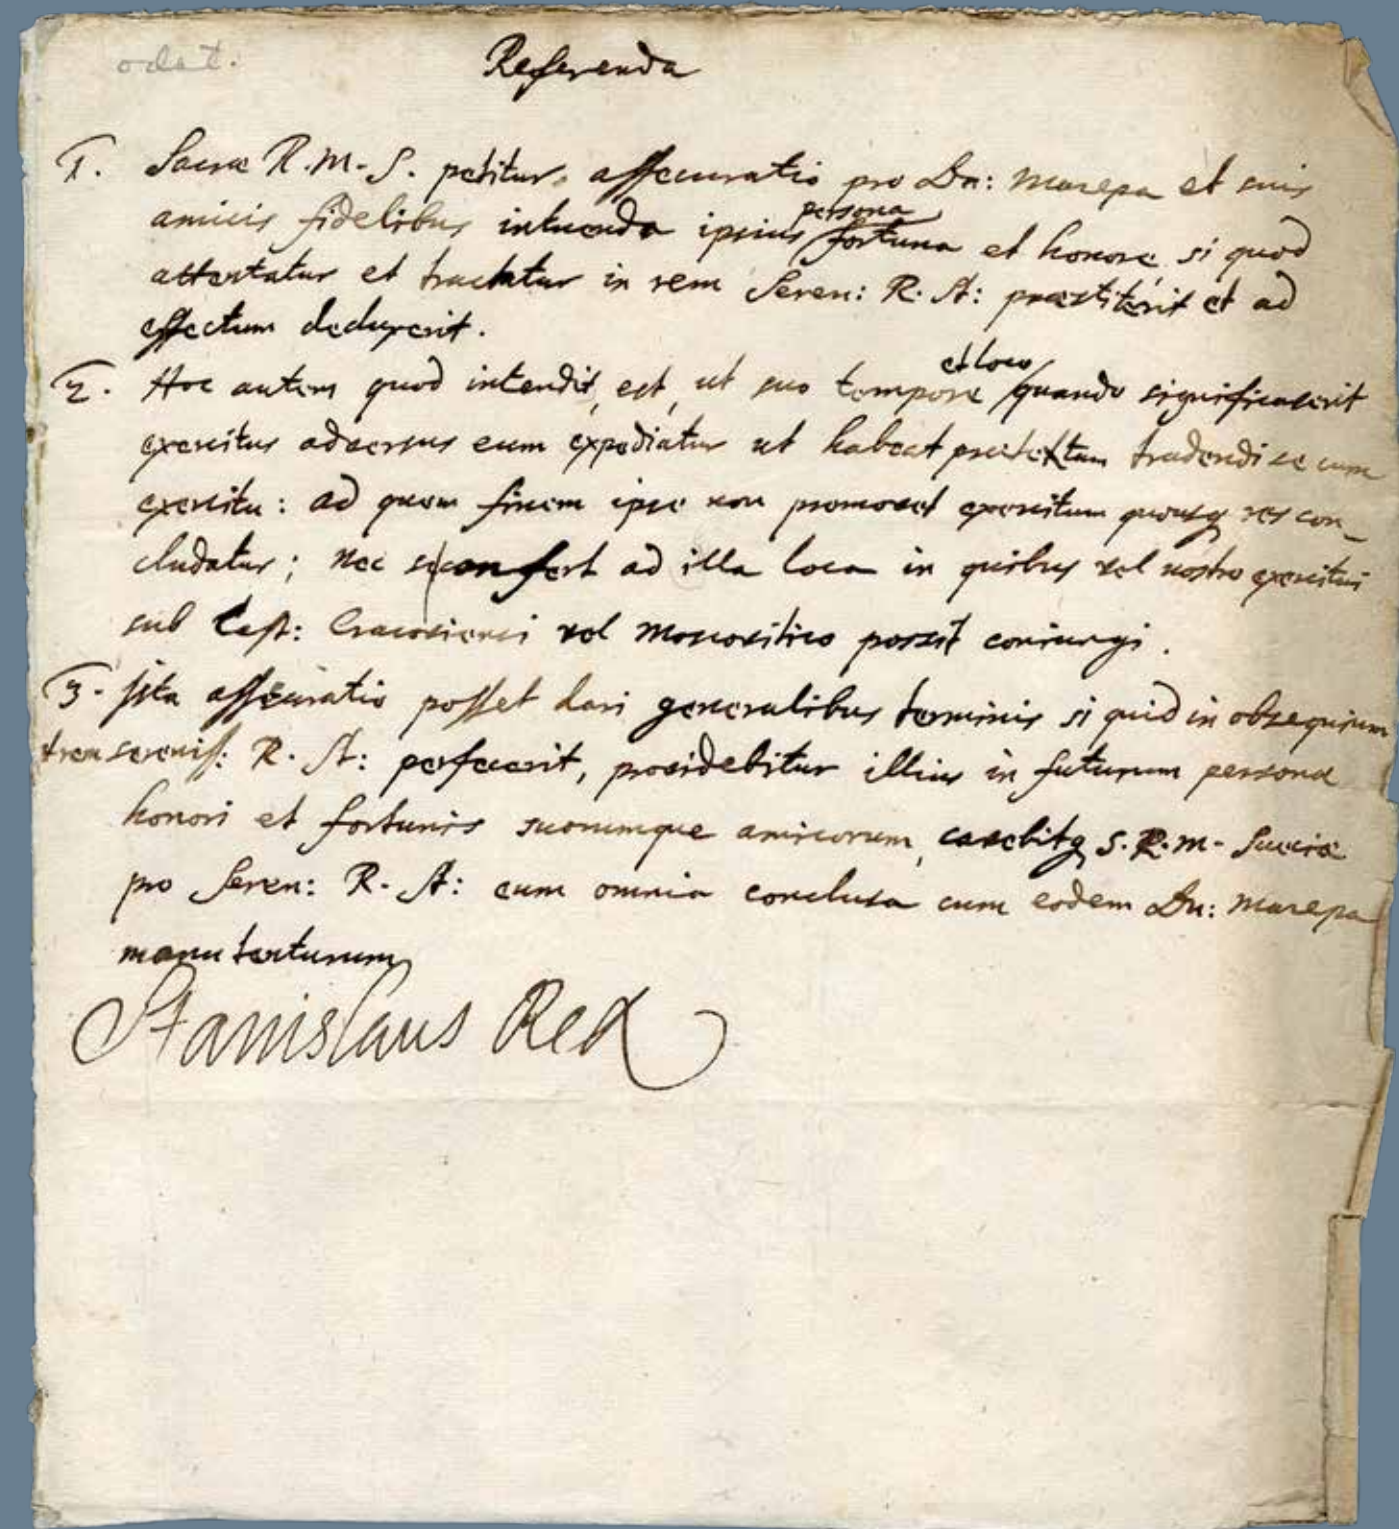 odat.
Referenda
1. Sacrae R. M. S. petitur assecuratio pro Dn: Mazepa et suis
amicis fidelibus intuenda ipsius persona
fortuna et honore, si quod
attentatur et tractatur in rem Seren: R. A: praestiterit et ad
effectum deduxerit.
2. Hoc autem quod intendit, est, ut suo tempore et loco quando significaverit
exercitus adversus eum expediatur ut habeat praetextum tradendi se cum
exercitu: ad quem finem ipse non promovet exercitum quousq res con_
cludatur; nec se confert ad illa loca in quibus vel nostro exercitui
sub Cast: Cracoviensi vel Moscovitico possit coniungi.
3. Ista assecuratio posset dari generalibus terminis si quid in obsequium
sereniss: R. A: perfecerit, providebitur illius in futurum personae
honori et fortunis suorumque amicorum, cavebitq S. R. M. Sueciae
pro Seren: R. A: eum omnia conclusa cum eodem Dn: Mazepa
manutenturum
Stanislaus Rex